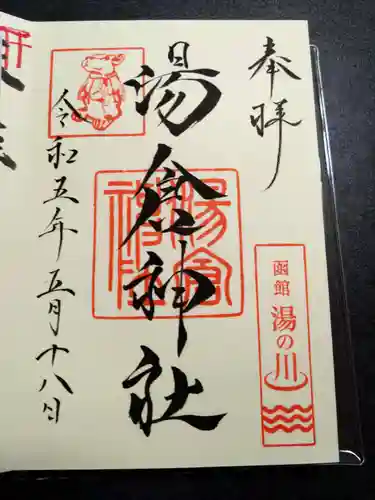 奉拝
函館 湯の川
湯倉神社
令和五年五月十八日